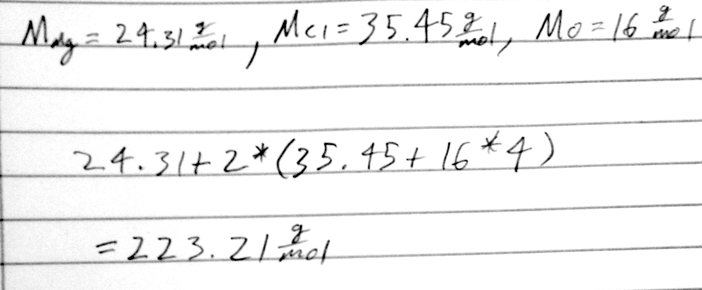 M_Mg = 24.31 g/mol, M_Cl = 35.45 g/mol, M_O = 16 g/mol
24.31 + 2*(35.45 + 16*4)
= 223.21 g/mol